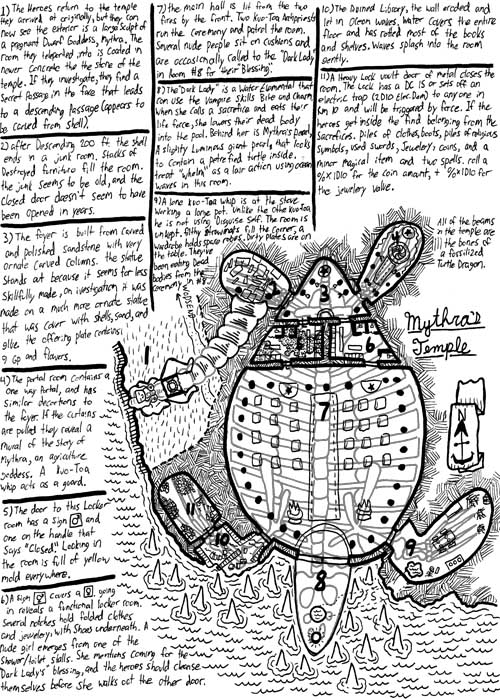 1) The Heroes return to the temple
they arrived at originally, but they can
now see the exterior is a large sculpt of
a pregnant Dwarf Goddess, Mythra. The
room they teleported into is coated in
newer concrete than the stone of the
temple. If they investigate, they find a
Secret Passage in the face that leads
to a descending passage (appears to
be carved from shell).
2) after Descending 200 ft the shell
ends in a junk room. Stacks of
Destroyed furniture fill the room.
the junk seems to be old, and the
closed door doesn't seem to have
been opened in years.
3) The foyer is built from carved
and polished Sandstone with very
ornate Carved Columns. the statue
Stands out because it seems far less
Skillfully made, on investigation it was
made on a much more ornate statue
that was cover with shells, sand, and
glue. the offering plate contains
9 GP and flowers.
4) The portal room contains a
one way portal, and has
similar decorations to
the foyer. If the curtains
are pulled they reveal a
Mural of the story of
Mythra, an agriculture
goddess. A Kuo-Toa
whip acts as a guard.
5) The door to this Locker
room has a sign ♂ and
one on the handle that
says "Closed". Looking in
the room is full of yellow
mold everywhere.
6) A sign ♂ covers a ♀, going
in reveals a functional locker room.
Several notches hold folded clothes
and jewelry, with shoes underneath. A
nude girl emerges from one of the
shower/toilet stalls. She mentions coming for the
Dark Lady's blessing, and the heroes should cleanse
themselves before she walks out the other door.
7) the main hall is lit from the two
fires by the front. Two Kuo-Toa Archpriests
run the Ceremony and patrol the room.
Several nude people sit on cushions and
are occasionally called to the "Dark Lady"
in Room #8 for their Blessing.
8) The "Dark Lady" is a Water Elemental that
can use the Vampire Skills Bite and Charm.
When she calls a sacrifice and eats their
life force, she lowers their dead body
into the pool. Behind her is Mythra's pearl,
A slightly luminous giant pearl, that looks
to contain a petrified turtle inside.
treat "whelm" as a lair action using ocean
waves in this room.
9) A lone Kuo-Toa whip is at the stove
working a large pot. Unlike the other Kuo-toa
he is not using Disguise Self. The room is
unkept, filthy straw fill the corner, a
wardrobe holds spare robes. Dirty plates are on
the table. They've
been eating Dead
bodies from the
ceremony
10) The Ruined Library, the wall eroded and
let in Ocean waves. Water covers the entire
floor and has rotted most of the books
and shelves. Waves splash into the room
gently.
11) A Heavy Lock vault door of metal closes the
room. The Lock has a DC 15 or sets off an
electric trap (2D10 Elec. Dam) to anyone in
5m R and will be triggered by force. If the
heroes get inside the find belonging from the
Sacrifices. Piles of clothes, boots, piles of religious
symbols, used swords, Jewelry, coins, and a
minor magical item and two spells. roll a
%x1D10 for the coin amount, + %x1D10 for
the jewelry value.
All of the beams
in the temple are
all the bones of
a fossilized
Turtle Dragon.
Mythra's
Temple
HIDDEN
N
1
2
3
4
5
6
7
8
9
10
11